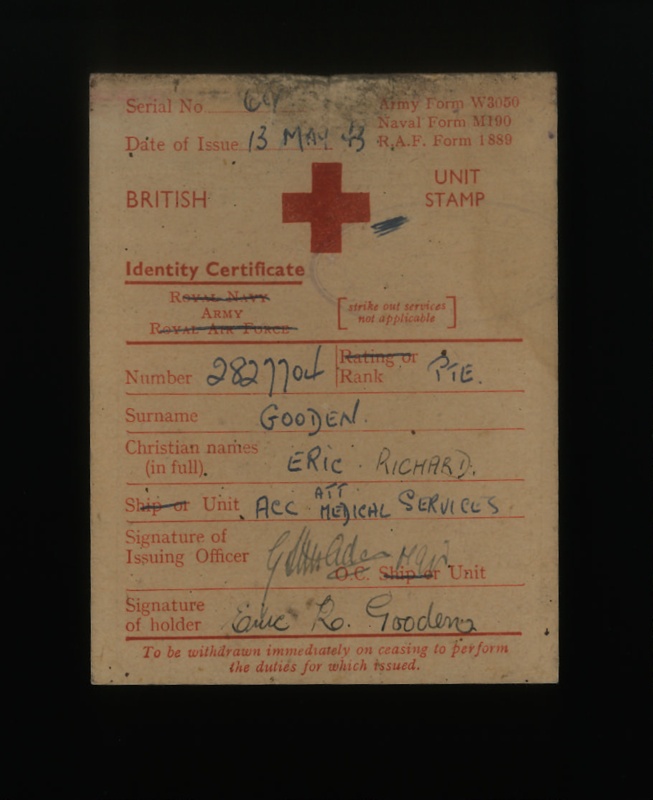 Serial No 64 Army Form W3050
Naval Form M190
Date of Issue 13 MAY 43 R.A.F. Form 1889
BRITISH
UNIT
STAMP
Identity Certificate
ROYAL NAVY
ARMY
ROYAL AIR FORCE
[strike out services
not applicable]
Number 2827704 Rating or
Rank PTE.
Surname GOODEN.
Christian names
(in full). ERIC. RICHARD.
Ship or Unit ACC ATT MEDICAL SERVICES
Signature of
Issuing Officer
O.C. Ship or Unit
Signature
of holder Eric R. Gooden
To be withdrawn immediately on ceasing to perform
the duties for which issued.